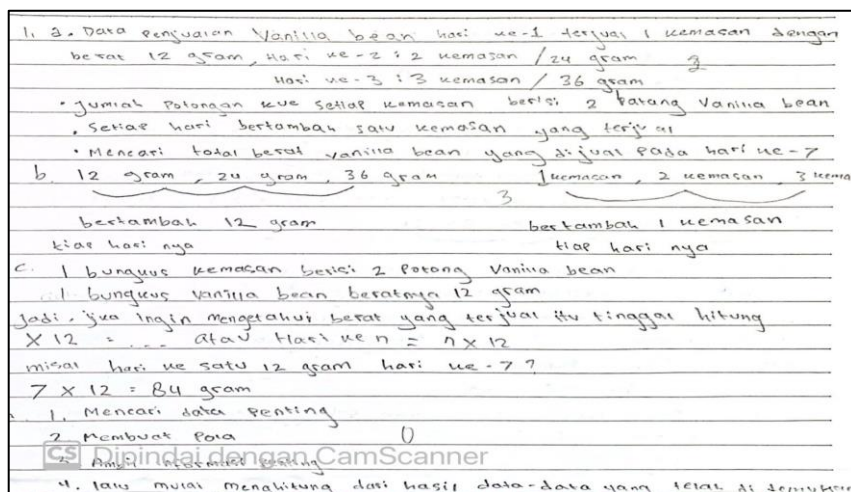 1. a. Data penjualan Vanilla bean hari ke-1 terjual 1 kemasan dengan
berat 12 gram, Hari ke-2 : 2 kemasan / 24 gram 3
Hari ke-3 : 3 kemasan / 36 gram
• Jumlah Potongan kue setiap kemasan berisi 2 batang Vanilla bean
• Setiap hari bertambah satu kemasan yang terjual
• Mencari total berat vanilla bean yang dijual pada hari ke-7
b. 12 gram, 24 gram, 36 gram 1 kemasan, 2 kemasan, 3 kema
3
bertambah 12 gram bertambah 1 kemasan
tiap hari nya tiap hari nya
c. 1 bungkus kemasan berisi 2 Potong Vanilla bean
1 bungkus vanilla bean beratnya 12 gram
Jadi, jika ingin mengetahui berat yang terjual itu tinggal hitung
X 12 = ... atau Hari ke n = n x 12
misal hari ke satu 12 gram hari ke-7?
7 x 12 = 84 gram
1. Mencari data penting
2. Membuat Pola 0
3. Ambil informasi penting
CS Dipindai dengan CamScanner
4. lalu mulai menghitung dari hasil data-data yang telah di temukan